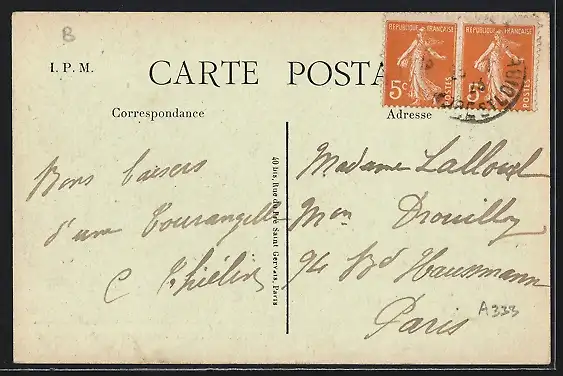 B
I. P. M.
CARTE POSTA
REPUBLIQUE FRANÇAISE
5c POSTES
REPUBLIQUE FRANÇAISE
5c POSTES
Correspondance
Adresse
Bons baisers
d'une Tourangelle
C Thiélin
40 bis, Rue du Pré Saint Gervais, Paris
Madame Lalloud
Mon Drouilly
94 Bd Haussmann
Paris
A333